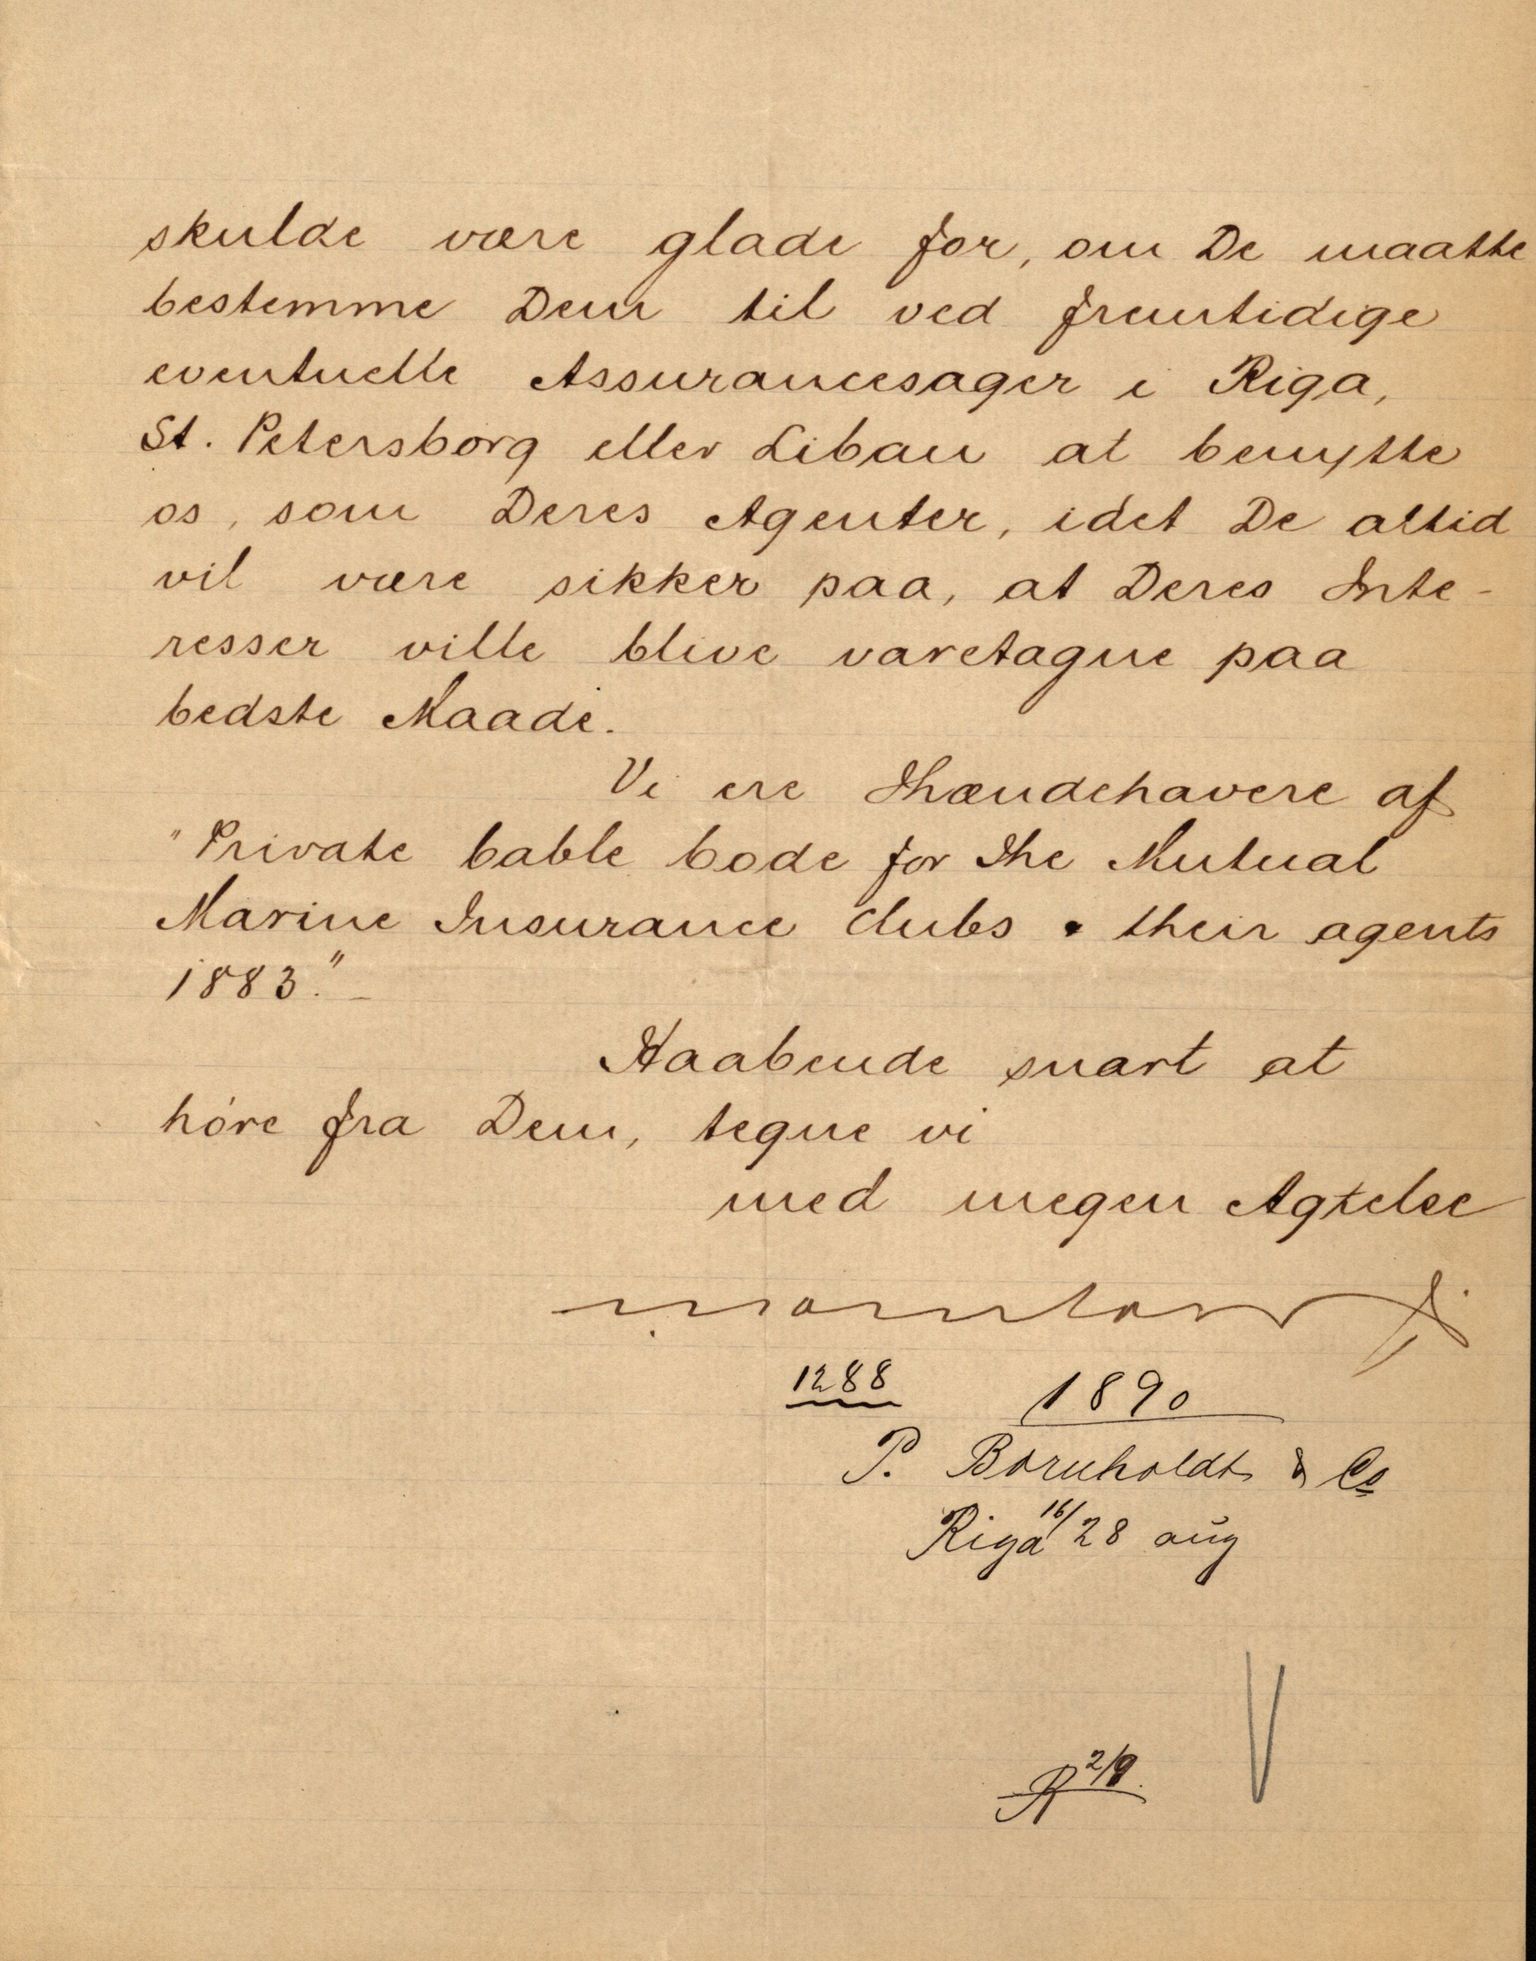 skulde være glade for, om De maatte
bestemme Dem til ved fremtidige
eventuelle Assurancesager i Riga,
St. Petersborg eller Libau at benytte
os, som Deres Agenter, idet De altid
vil være sikker paa, at Deres Inte-
resser ville blive varetagne paa
bedste Maade.
Vi ere Ihændehavere af
"Private Cable Code for the Mutual
Marine Insurance Clubs & their agents
1883."
Haabende snart at
høre fra Dem, tegne vi
med megen Agtelse
1288 1890
P. Bornholdt & Co
Riga 16/28 aug
R 2/9.